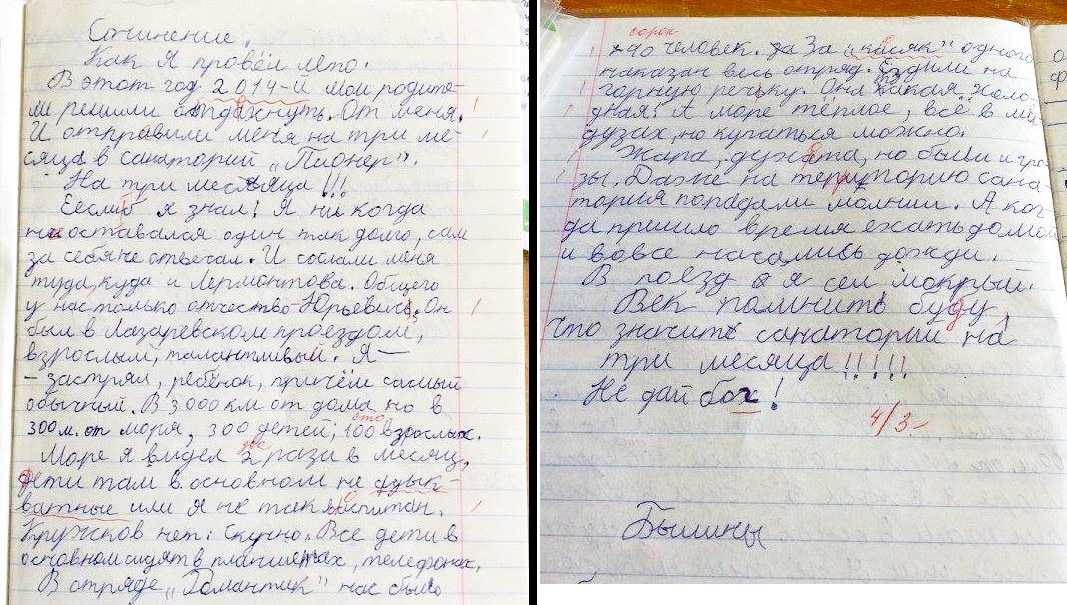 Сочинение.
Как я провёл лето.
В этот год 2014-й мои родите-
ли решили отдахнуть. От меня.
И отправили меня на три ме-
сяца в санаторий „Пионер".
На три месяца!!!
Еесли б я знал! Я ни когда
не оставался один так долго, сам
за себя не отвечал. И сослали меня
туда, куда и Лермонтова. Общего
у нас только отчество Юрьевичь. Он
был в Лазаревском проездом,
взрослый, талантливый. Я —
– застрял, ребёнок, причём самый
обычный. В 3000 км от дома но в
сто
300 м. от моря, 300 детей, 100 взрослых.
два
Море я видел 2 раза в месяц,
дети там в основном не адык-
ватные или я не так воспитан.
Кружков нет. Скучно. Все дети в
основном сидят в планшетах, телефонах.
В отряде „Романтик" нас было
сорок
40 человек. За „касяк" одного
наказан весь отряд. Ездили на
горную речьку. Она такая холо-
дная! А море тёплое, всё в ме-
дузах, но купаться можно.
Жара, духата, но были и гро-
зы. Даже на территорию сана-
тория попадали молнии. А ког-
да пришло время ехать домой
и вовсе начались дожди.
В поезд я сел мокрый.
Век помнить буду,
что значит санаторий на
три месяца!!!!!
Не дай бох!
4/3-
Былины